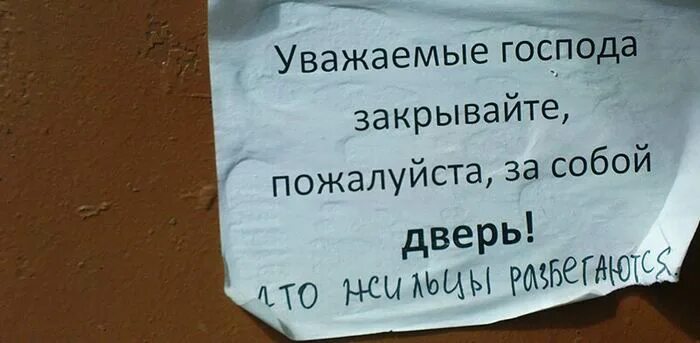 Уважаемые господа
закрывайте,
пожалуйста, за собой
дверь!
А то жильцы разбегаются.